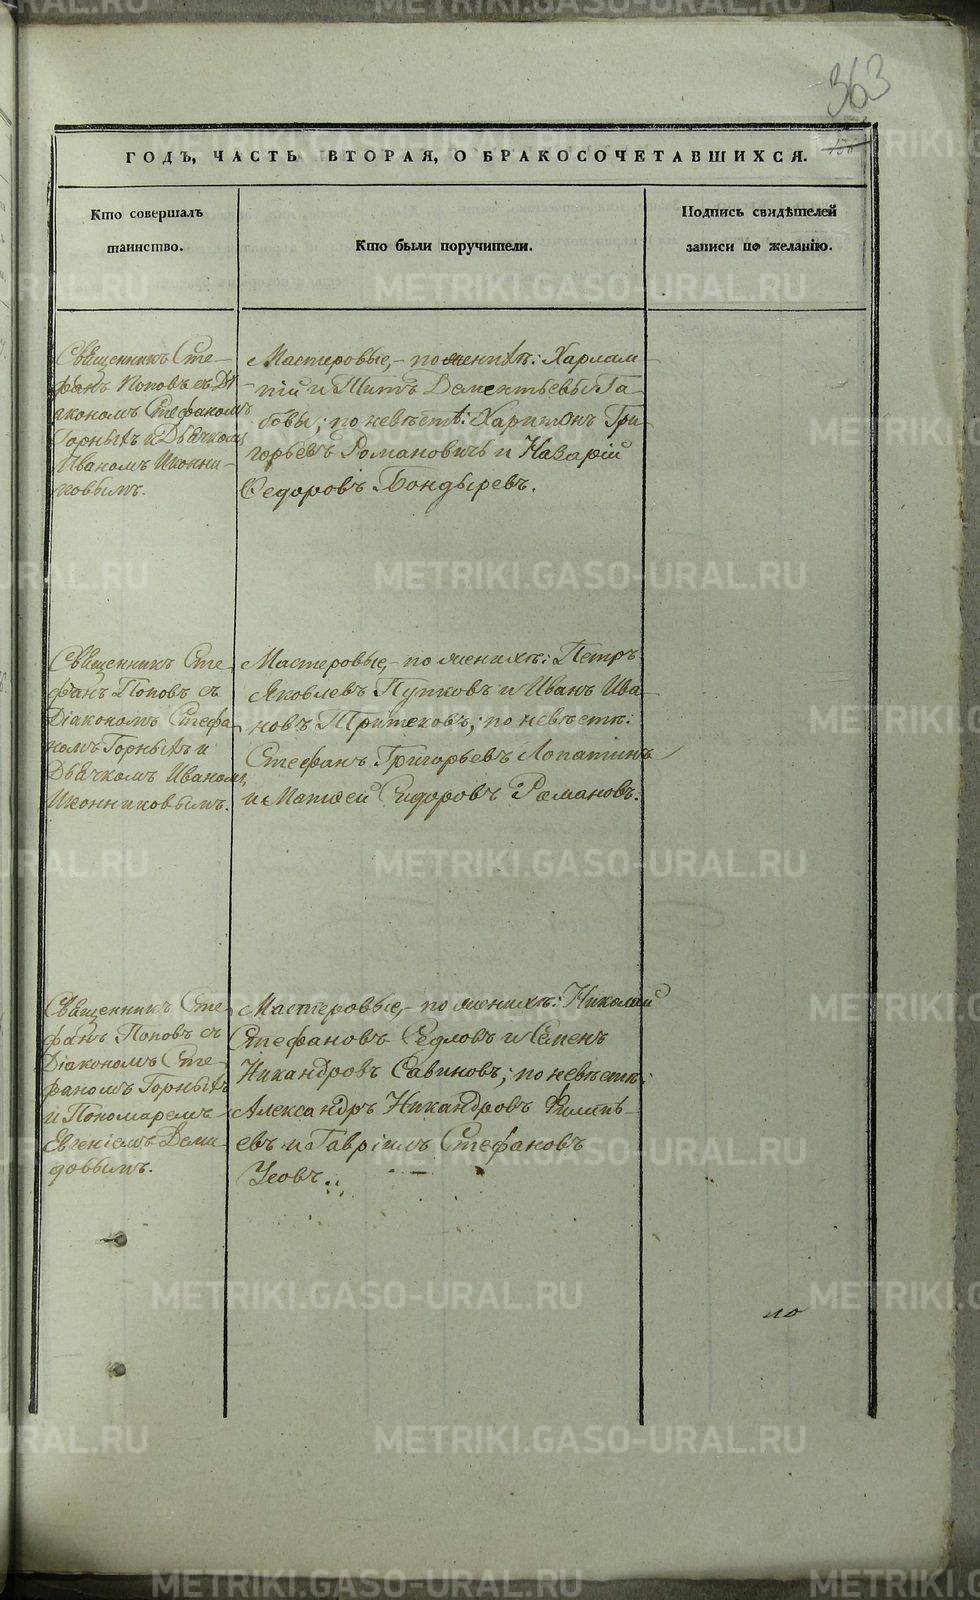 363
ГОДЪ, ЧАСТЬ ВТОРАЯ, О БРАКОСОЧЕТАВШИХСЯ.
Кто совершалъ
таинство.
Кто были поручители.
Подпись свидѣтелей
записи по желанію.
Священникъ Сте-
фанъ Поповъ съ Дi-
акономъ Стефаномъ
Горныхъ и Дьячкомъ
Иваномъ Иконни-
ковымъ.
Мастеровые, - по женихѣ: Харлам-
пій и Титъ Дементьевы Га-
бовы; по невѣстѣ: Харитонъ Гри-
горьевъ Романовичъ и Назарій
Ѳедоровъ Бондыревъ.
Священникъ Сте-
фанъ Поповъ съ
Діакономъ Стефа-
номъ Горныхъ и
Дьячкомъ Иваномъ
Иконниковымъ.
Мастеровые, - по женихѣ: Петръ
Яковлевъ Пупковъ и Иванъ Ива-
новъ Тритековъ; по невѣстѣ:
Стефанъ Григорьевъ Лопатинъ
и Матѳей Сидоровъ Романовъ.
Священникъ Сте-
фанъ Поповъ съ
Діакономъ Сте-
фаномъ Горныхъ
и Пономаремъ
Евгеніемъ Деми-
довымъ.
Мастеровые, - по женихѣ: Николай
Стефановъ Седловъ и Семенъ
Никандровъ Савиновъ; по невѣстѣ:
Александръ Никандровъ Филипь-
евъ и Гавріилъ Стефановъ
Усовъ.
по
METRIKI.GASO-URAL.RU